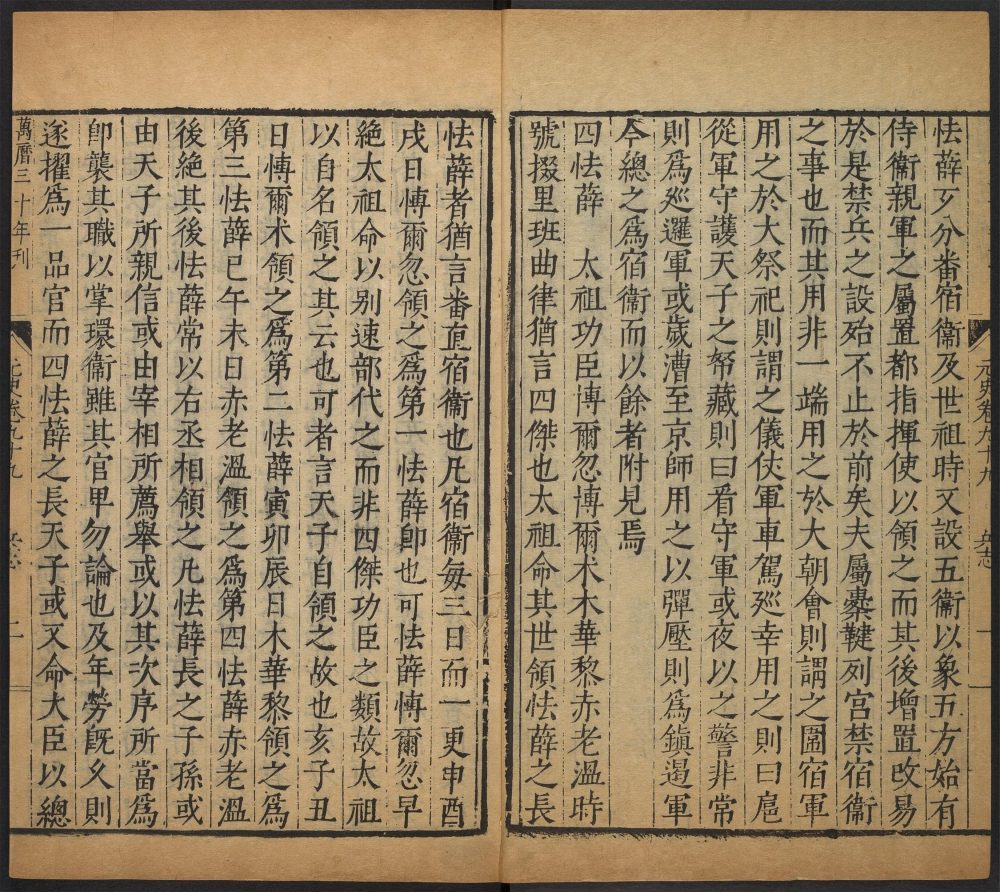 怯薛歹分番宿衛及世祖時又設五衛以象五方始有
侍衛親軍之屬置都指揮使以領之而其後增置改易
於是禁兵之設殆不止於前矣夫屬櫜鞬列宮禁宿衛
之事也而其用非一端用之於大朝會則謂之圍宿軍
用之於大祭祀則謂之儀仗軍車駕巡幸用之則曰扈
從軍守護天子之帑藏則曰看守軍或夜以之警非常
則爲巡邏軍或歲漕至京師用之以彈壓則爲鎮遏軍
今總之爲宿衛而以餘者附見焉
四怯薛 太祖功臣博爾忽博爾术木華黎赤老溫時
號掇里班曲律猶言四傑也太祖命其世領怯薛之長
元史卷九十九 兵志 一
怯薛者猶言番直宿衛也凡宿衛每三日而一更申酉
戌日博爾忽領之爲第一怯薛卽也可怯薛博爾忽早
絕太祖命以别速部代之而非四傑功臣之類故太祖
以自名領之其云也可者言天子自領之故也亥子丑
日博爾术領之爲第二怯薛寅卯辰日木華黎領之爲
第三怯薛巳午未日赤老溫領之爲第四怯薛赤老溫
後絕其後怯薛常以右丞相領之凡怯薛長之子孫或
由天子所親信或由宰相所薦舉或以其次序所當爲
卽襲其職以掌環衛雖其官卑勿論也及年勞旣久則
遂擢爲一品官而四怯薛之長天子或又命大臣以總
萬曆三十年刊
元史卷九十九 兵志 二